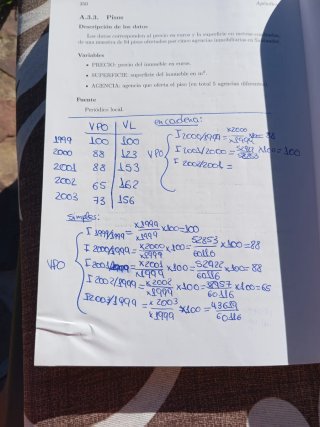 350
A.3.3. Pisos
Descripción de los datos
Los datos corresponden al precio en euros y la superficie en metros
de una muestra de 84 pisos ofertados por cinco agencias inmobiliarias en
Variables
• PRECIO: precio del inmueble en euros.
• SUPERFICIE: superficie del inmueble en m².
• AGENCIA: agencia que oferta el piso (en total 5 agencias diferentes)
Fuente
Periódico local.
VPO VL
1999 100 100
2000 88 123
2001 88 153
2002 65 162
2003 73 156
en cadena:
VPO
I 2000/1999 = x2000/x1999 x100 = 88
I 2001/2000 = 52922/52853 x100 = 100
I 2002/2001 =
simples:
VPO
I 1999/1999 = x1999/x1999 x100 = 100
I 2000/1999 = x2000/x1999 x100 = 52853/60116 x100 = 88
I 2001/1999 = x2001/x1999 x100 = 52922/60116 x100 = 88
I 2002/1999 = x2002/x1999 x100 = 38957/60116 x100 = 65
I 2003/1999 = x2003/x1999 x100 = 43619/60116